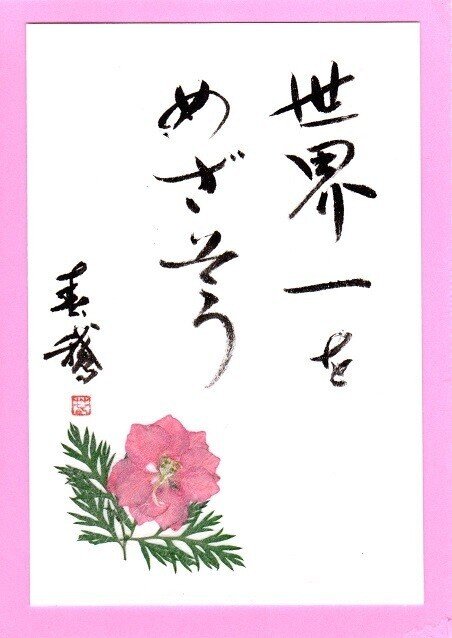 世界一を
めざそう
春鵞